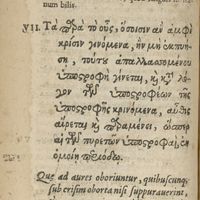 num bilis.
VII. Τὰ παρὰ τὸ οὖς, ὁσοισιν ἂν ἀμφὶ
κρίσιν γινόμενα, ἢν μὴ ἐκπυή-
ση, τούτου ἀπαλλασσομένου
ὑποστροφὴ γίνεται, κỳ κỳ λό-
γον τῶν ὑποστροφῶν τῆς
ὑποστροφῆς κρινομένης, αὖθις
αἴρεται κỳ παραμένει, ὥσπερ
αἱ τῶν πυρετῶν ὑποστροφαὶ, ἐν
ὁμοίῃ περιόδῳ.
Quæ ad aures oboriuntur, quibuscunq;
sub crisim oborta nisi suppurauerint,